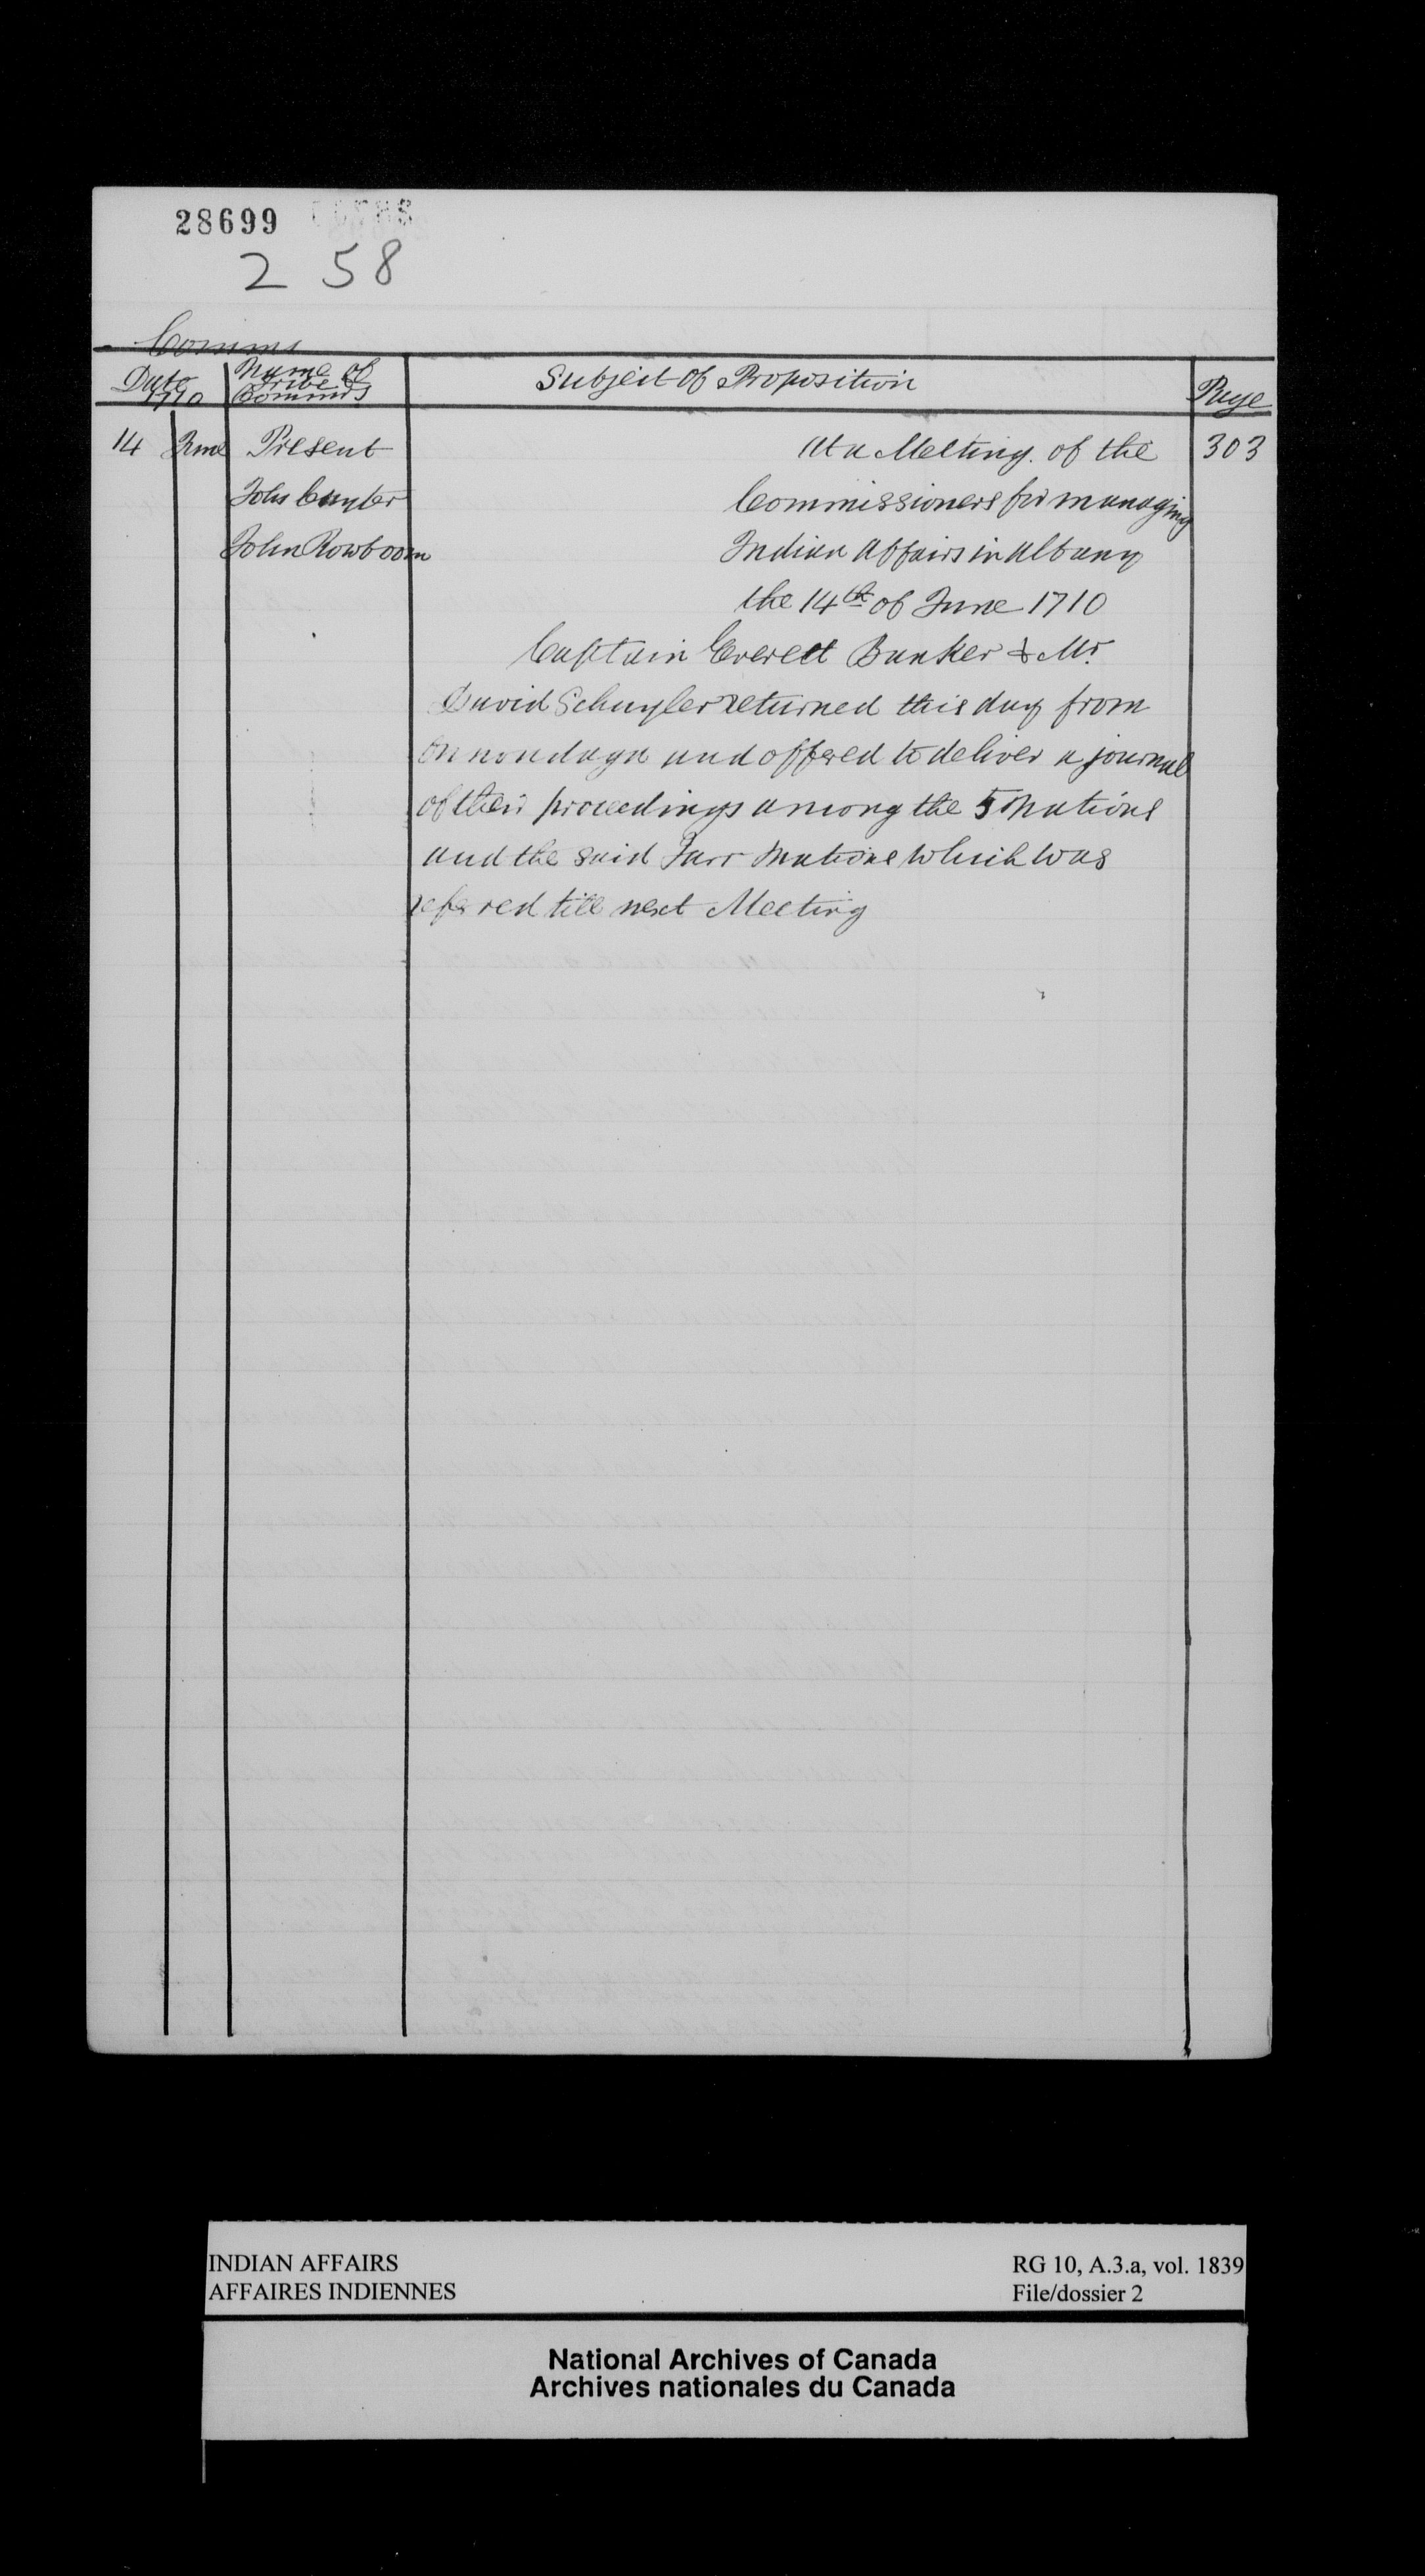 28699
2 58
Comms
Date 1710
Name of Tribe & Commrs
Subject of Proposition
Page
14 June Present At a Meeting of the 303
John Cuyler Commissioners for managing
John Rowboom Indian Affairs in Albany
the 14th of June 1710
Captain Everett Banker & Mr
David Schuyler returned this day from
Onnondaga and offered to deliver a journal
of their proceedings among the 5 Nations
and the said Farr Nations which was
referred till next Meeting
INDIAN AFFAIRS
AFFAIRES INDIENNES
RG 10, A.3.a, vol. 1839
File/dossier 2
National Archives of Canada
Archives nationales du Canada